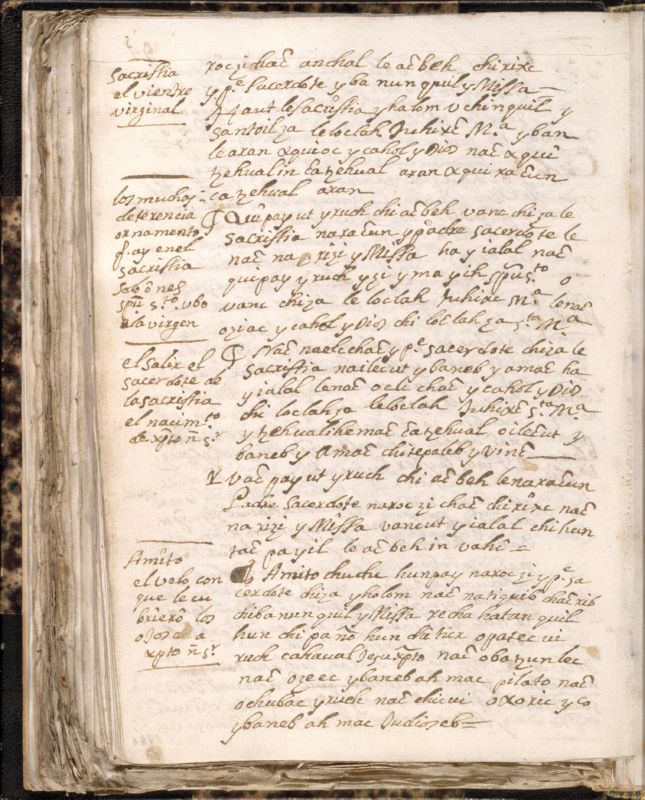 Sacristia
el vientre
virginal
roczi chac anchal le acbeh chirixc
y pe sacerdote y ba nunquil y Missa
Haut le sacristia y halom vchinquil y
santoil za le loclah Juhixc Ma yban
le aran xquioc y cahol y Dios nac xqui
tzehual in ca tzehual aran xqui racun
ca tzehual aran
los muchos
deterencia
ornamento
q ay en el
sacristia
spu sto vbo
a la virgen
Qui pay ut y ruch chi acbeh vanc chi za le
sacristia naxacun y padre sacerdote le
nac na xizi y Missa ha y ialal nac
qui pay y ruch y zi y ma y ih spu sto o
vanc chiza le loclah Juhixc Ma lenac
oziac y cahol y Dios chi loclah za sta Ma
el salir el
sacerdote de
la sacristia
el nacimto
de xpto ñ sr
Nac naelc chac y pe sacerdote chiza le
Sacristia nailecut y baneb y amac ha
y ialal lenac oelc chac y cahol y Dios
chi loclah za leloclah Juhixc sta Ma
y tzehual ihemac ca tzehual oilecut y
baneb y Amac chitepaleb y vinc
vac pay ut y ruch chi acbeh lenaxacun
Padre sacerdote naroc zi chac chi rixc nac
na xizi y Missa vanc ut y ialal chi hun
tac pa yil le acbeh in vahi
Amito
el velo con
que le cu
briero los
ojos a
xpto ñ sr
Amito chuchu hunpay naroczi y pe sa
cerdote chiza y holom nac natiquib chac rib
chiba nunquil y Missa recha hatan quil
hun chi paño hun chi ticr opatec ui
ruch cahaual Jesu xpto nac oba tzun lec
nac ozeec y baneb ah mac pilato nac
ochubac y ruch nac chic ui oxoxic y co
y baneb ah mac Judioseb